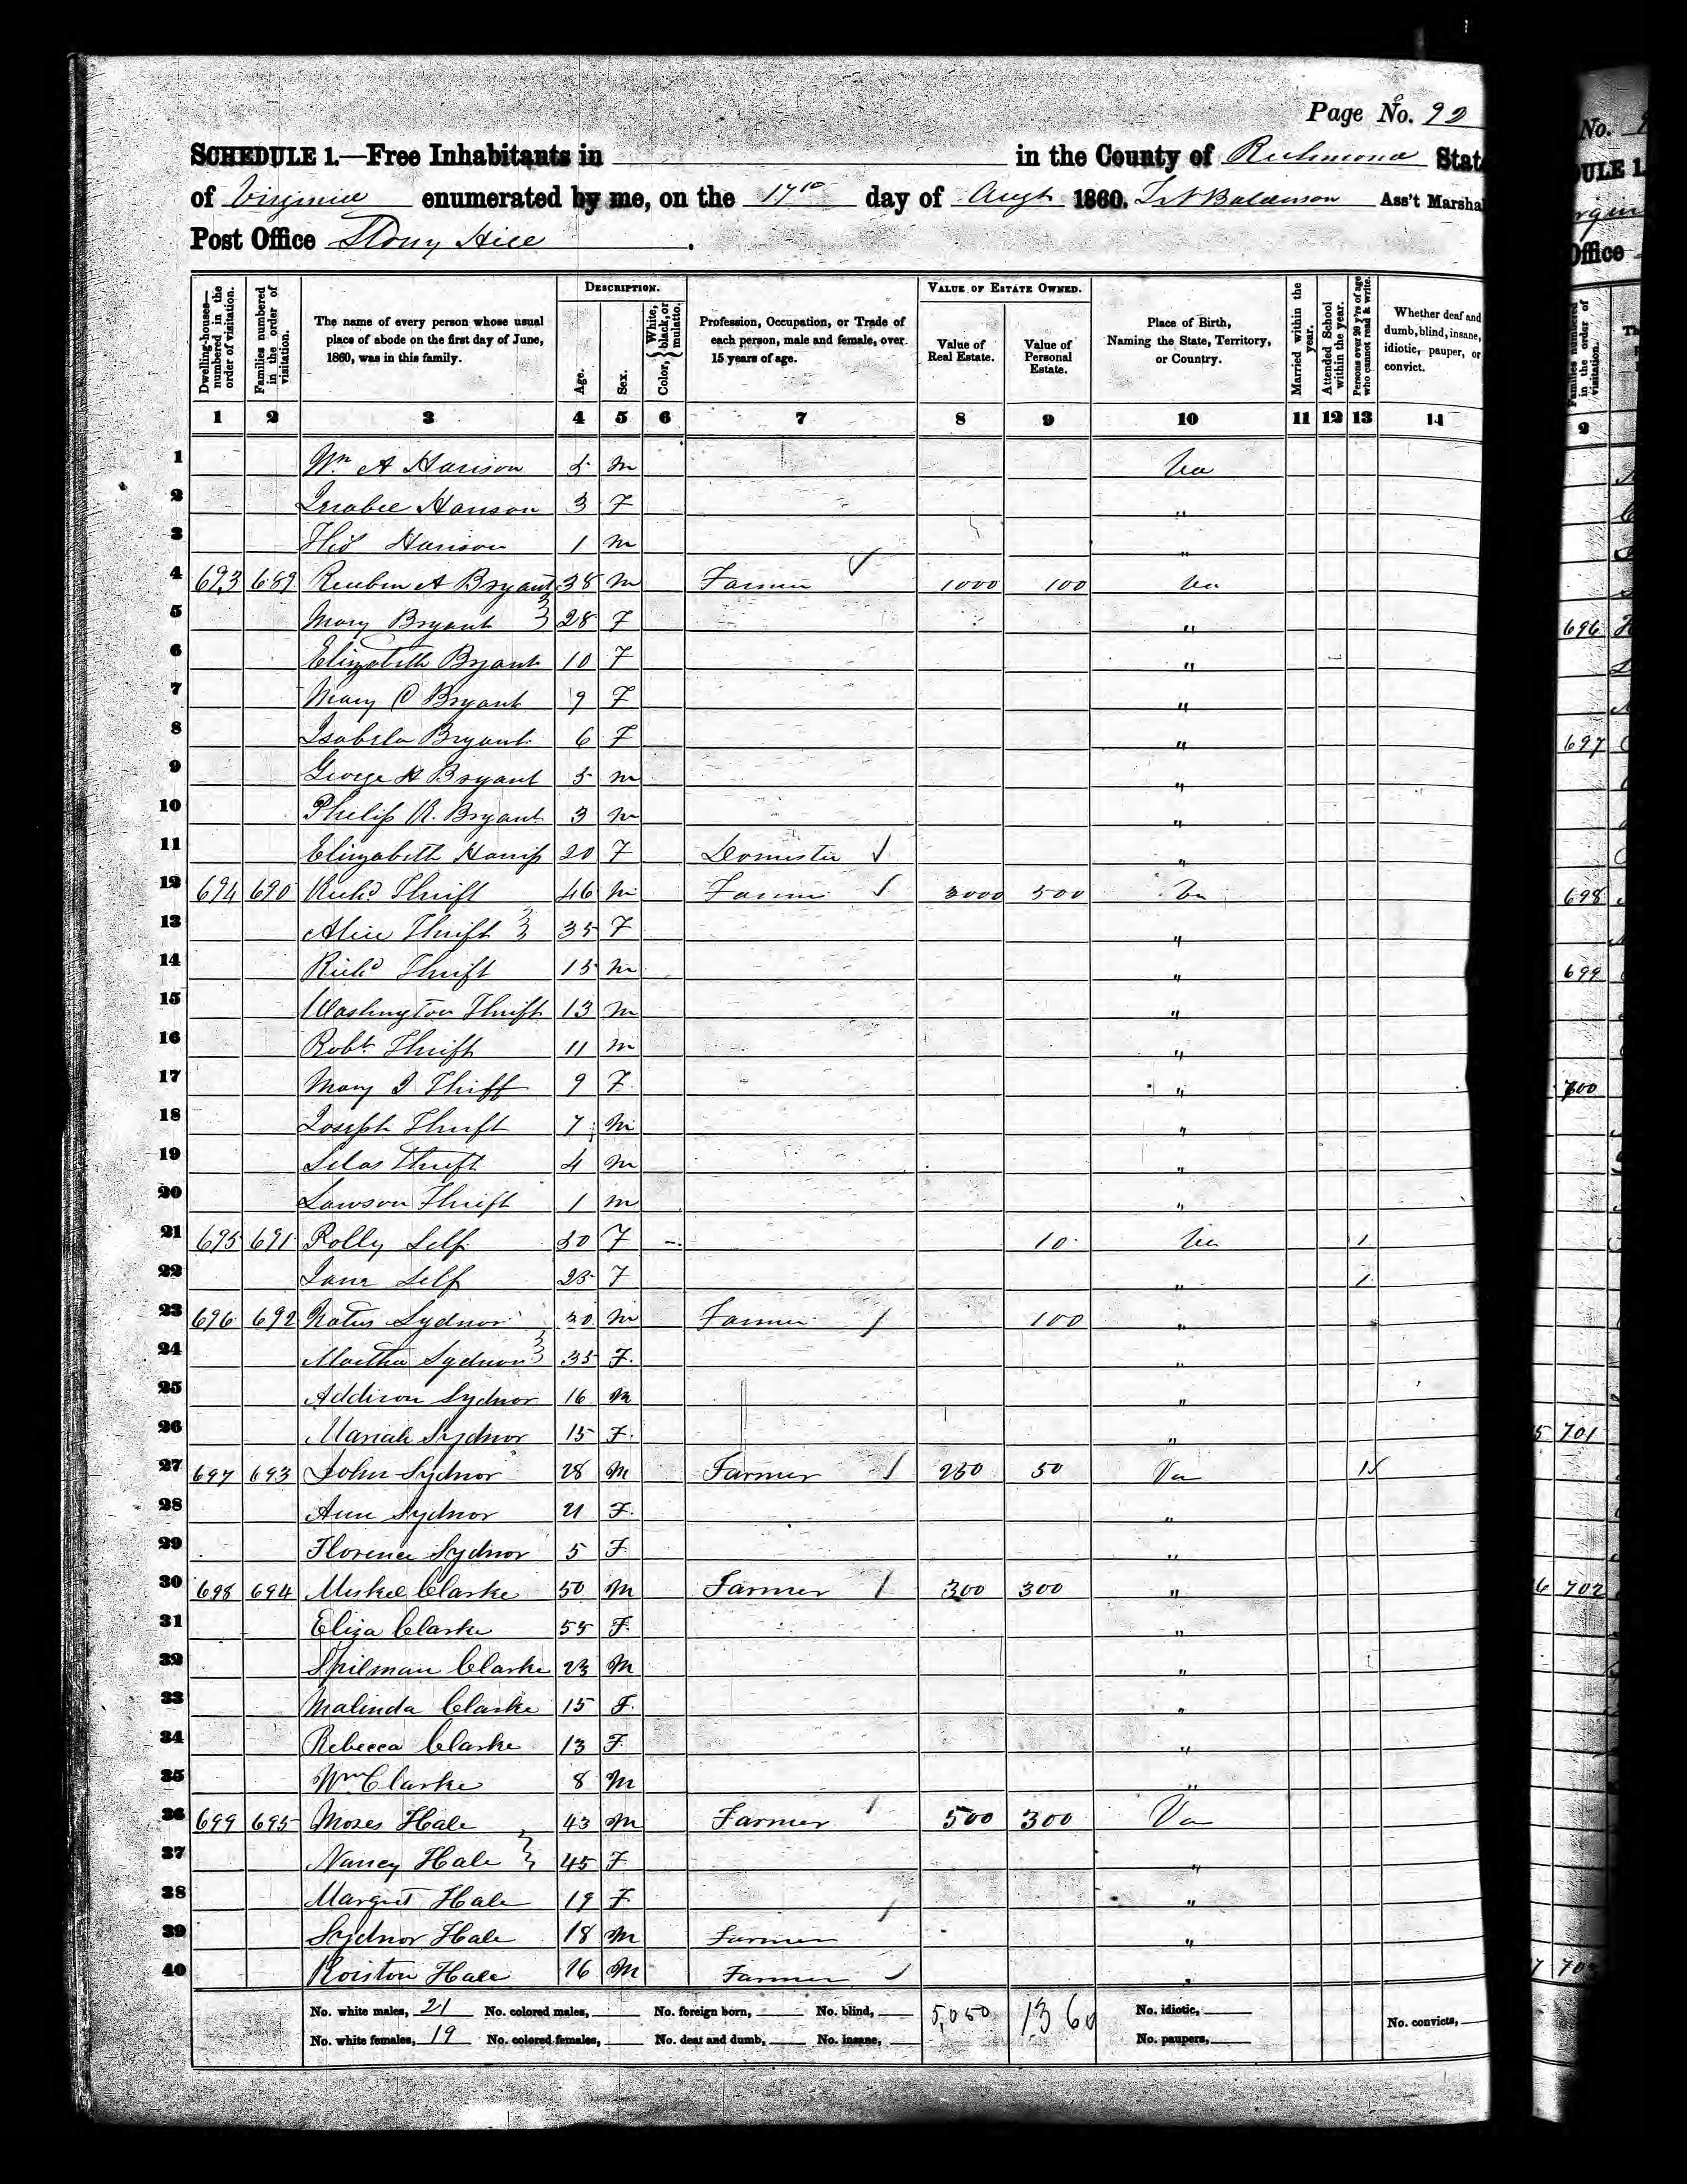 Page No. 92
SCHEDULE 1.—Free Inhabitants in in the County of Richmond State
of Virginia enumerated by me, on the 17th day of Augt 1860. Ass't Marshal
Post Office Stony Hill .
DESCRIPTION. VALUE OF ESTATE OWNED.
Dwelling-houses—numbered in the order of visitation. Families numbered in the order of visitation. The name of every person whose usual place of abode on the first day of June, 1860, was in this family. Age. Sex. Color, White, black, or mulatto. Profession, Occupation, or Trade of each person, male and female, over 15 years of age. Value of Real Estate. Value of Personal Estate. Place of Birth, Naming the State, Territory, or Country. Married within the year. Attended School within the year. Persons over 20 y'rs of age who cannot read & write. Whether deaf and dumb, blind, insane, idiotic, pauper, or convict.
1 2 3 4 5 6 7 8 9 10 11 12 13 14
1 Wm A Harrison 5 M Va
2 3 F "
3 1 M "
4 693 689 Reuben A Bryant 38 M Farmer 1000 100 Va
5 Mary Bryant 28 F "
6 Elizabeth Bryant 10 F "
7 Mary C Bryant 9 F "
8 Isabela Bryant 6 F "
9 George H Bryant 5 M "
10 Philip R. Bryant 3 M "
11 Elizabeth 20 F Domestic "
12 694 690 Richd Thrift 46 M Farmer 3000 500 Va
13 Alice Thrift 35 F "
14 Richd Thrift 15 M "
15 Washington Thrift 13 M "
16 Robt Thrift 11 M "
17 Mary J Thrift 9 F "
18 Joseph Thrift 7 M "
19 Silas Thrift 4 M "
20 Lawson Thrift 1 M "
21 695 691 Polly Self F 10 Va 1
22 Jane Self F " 1
23 696 692 Sydnor M Farmer 100 "
24 Martha Sydnor 35 F "
25 Addison Sydnor 16 M "
26 Mariah Sydnor 15 F "
27 697 693 John Sydnor 28 M Farmer 250 50 Va 1
28 Ann Sydnor 21 F "
29 Florence Sydnor 5 F "
30 698 694 Meskel Clarke 50 M Farmer 300 300 "
31 Eliza Clarke 55 F "
32 Spilman Clarke 23 M "
33 Malinda Clarke 15 F "
34 Rebecca Clarke 13 F "
35 Wm Clarke 8 M "
36 699 695 Moses Hale 43 M Farmer 500 300 Va
37 Nancy Hale 45 F "
38 Margret Hale 19 F "
39 Sydnor Hale 18 M Farmer "
40 Roiston Hale 16 M Farmer "
No. white males, 21 No. colored males, No. foreign born, No. blind, 5,050 1360 No. idiotic,
No. white females, 19 No. colored females, No. deaf and dumb, No. insane, No. paupers, No. convicts,
696
697
698
699
700
701
702